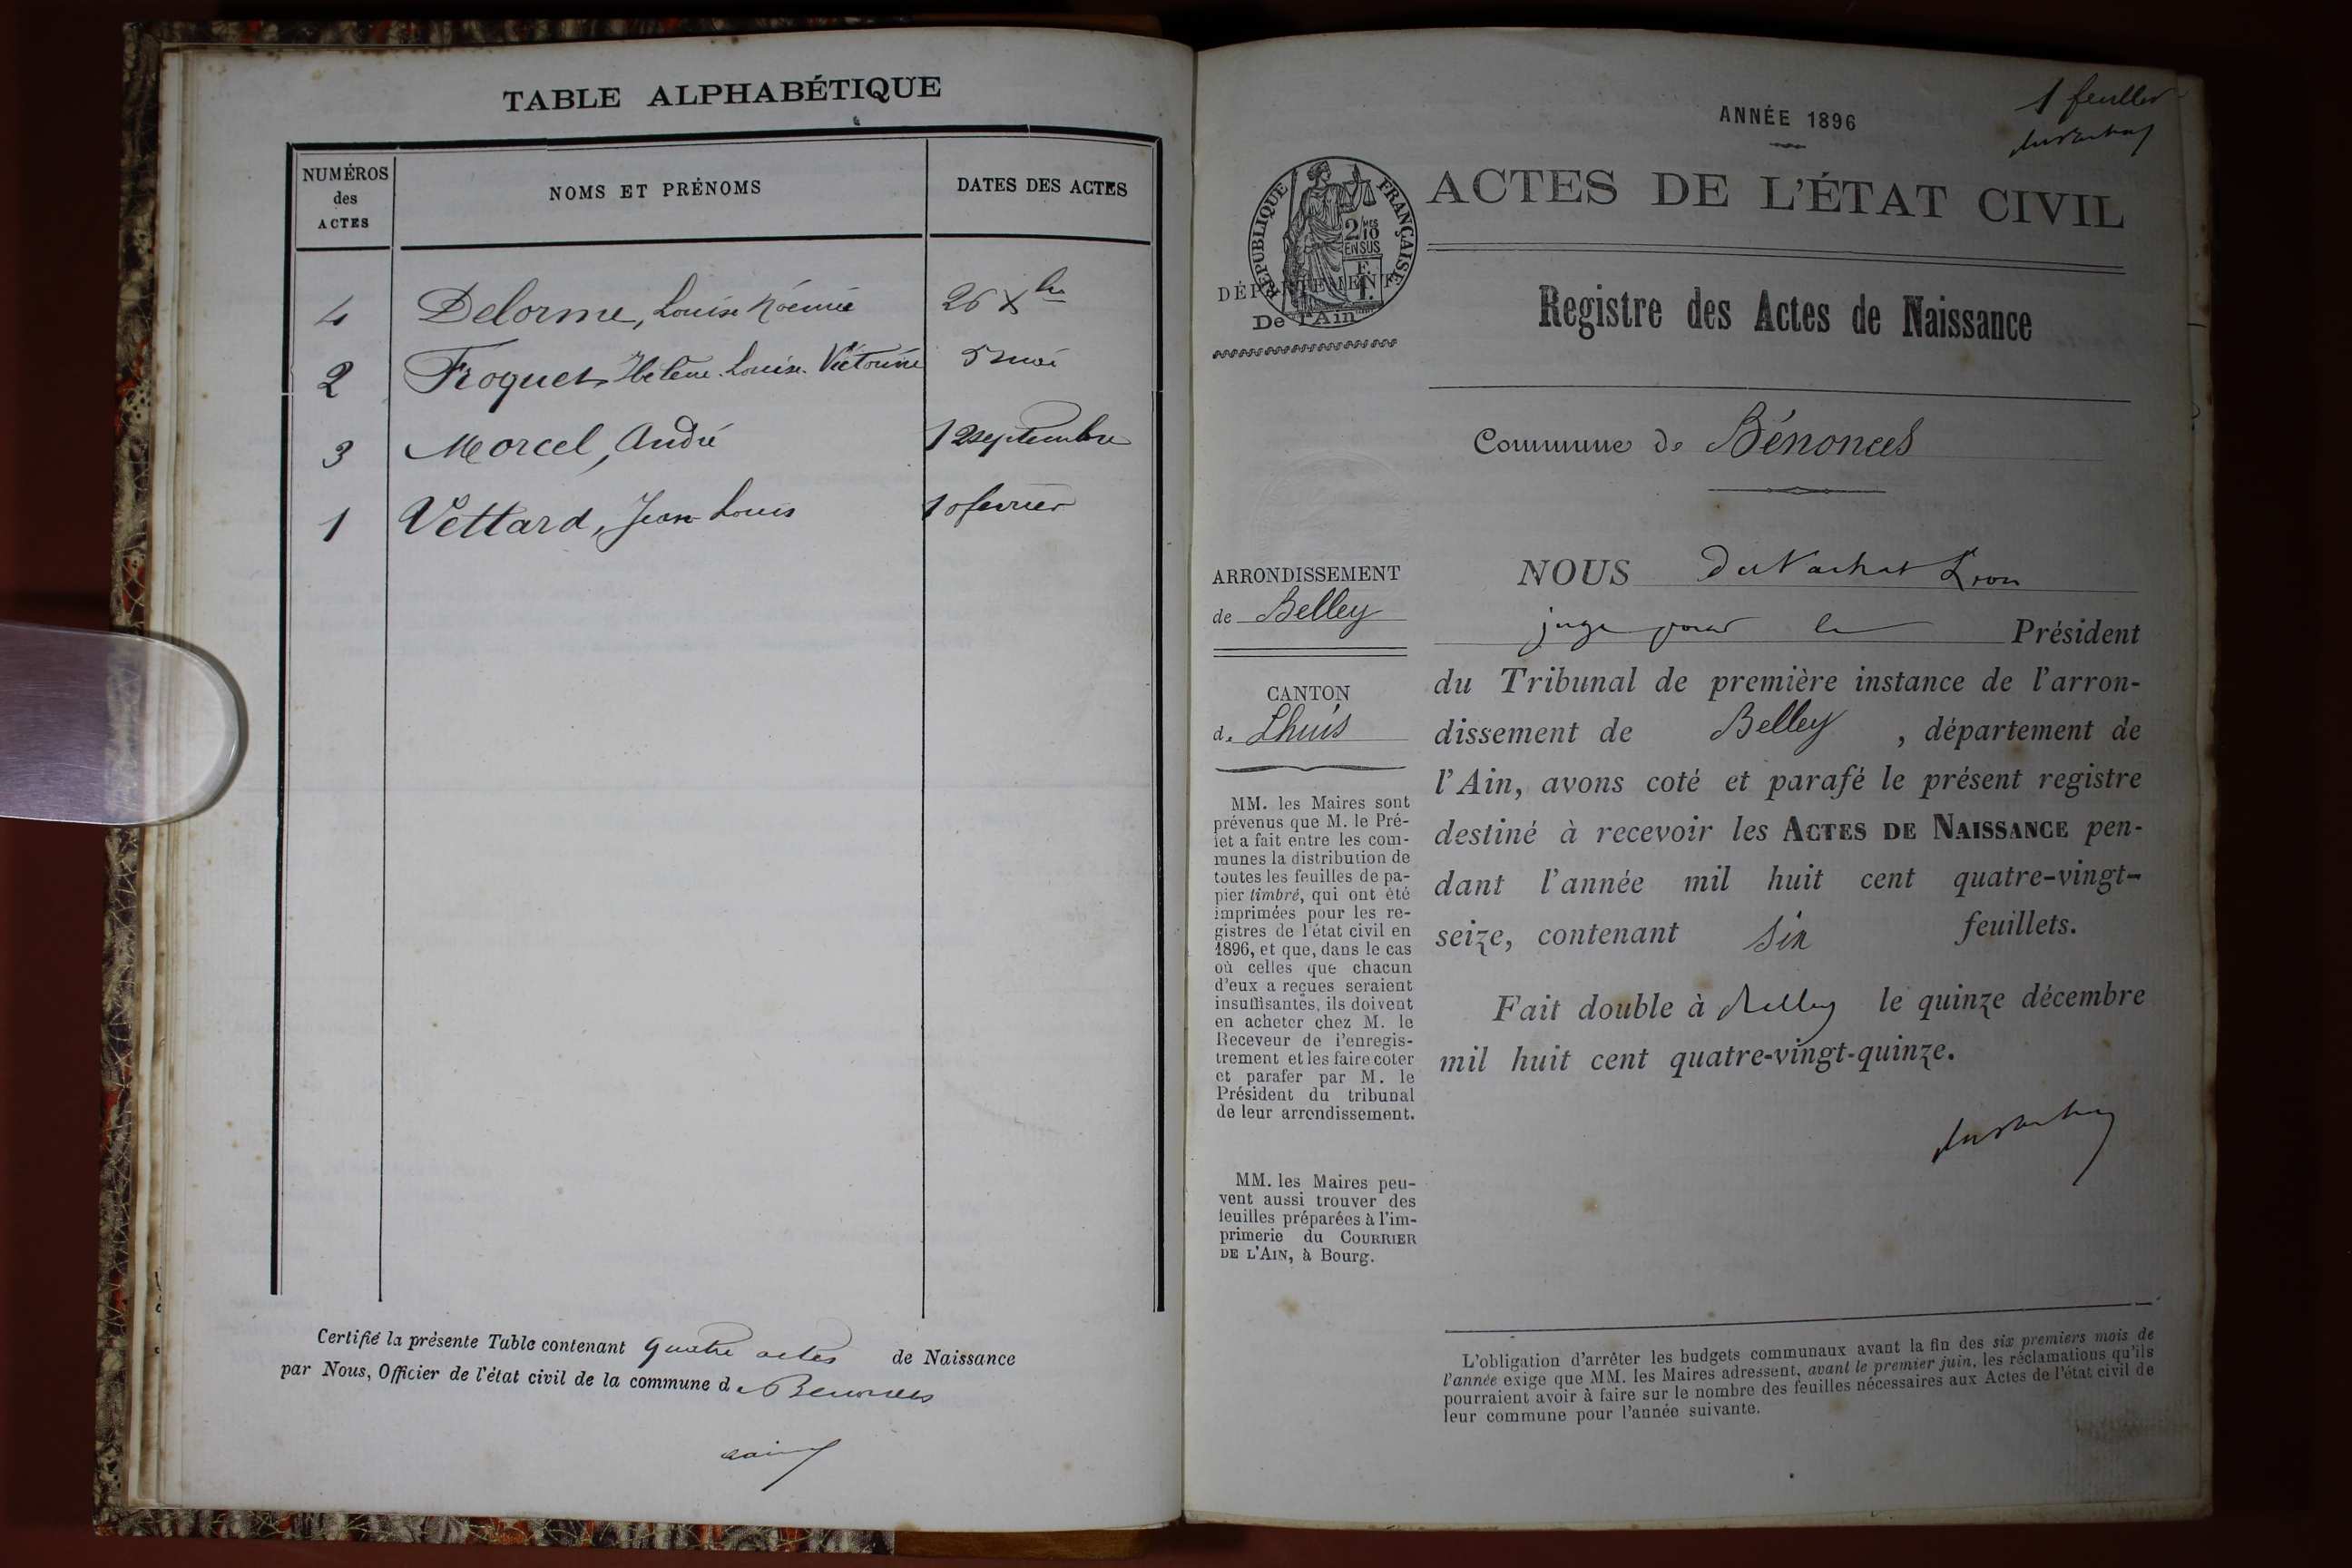 TABLE ALPHABÉTIQUE
NUMÉROS
des
ACTES
NOMS ET PRÉNOMS
DATES DES ACTES
4 Delorme, Louise Noémie 26 Xbre
2 Froquet Hélène Louise Victorine 5 mai
3 Morcel, André 12 septembre
1 Vettard, Jean Louis 10 février
Certifié la présente Table contenant quatre actes de Naissance
par Nous, Officier de l'état civil de la commune de Bénonces
1 feuillet
ANNÉE 1896
ACTES DE L'ÉTAT CIVIL
RÉPUBLIQUE FRANÇAISE
2/10MES
EN SUS
DÉPARTEMENT
De l'Ain
Registre des Actes de Naissance
Commune de Bénonces
ARRONDISSEMENT
de Belley
CANTON
de Lhuis
MM. les Maires sont
prévenus que M. le Pré-
fet a fait entre les com-
munes la distribution de
toutes les feuilles de pa-
pier timbré, qui ont été
imprimées pour les re-
gistres de l'état civil en
1896, et que, dans le cas
où celles que chacun
d'eux a reçues seraient
insuffisantes, ils doivent
en acheter chez M. le
Receveur de l'enregis-
trement et les faire coter
et parafer par M. le
Président du tribunal
de leur arrondissement.
MM. les Maires peu-
vent aussi trouver des
feuilles préparées à l'im-
primerie du COURRIER
DE L'AIN, à Bourg.
NOUS du Vachat Léon
juge pour le Président
du Tribunal de première instance de l'arron-
dissement de Belley, département de
l'Ain, avons coté et parafé le présent registre
destiné à recevoir les ACTES DE NAISSANCE pen-
dant l'année mil huit cent quatre-vingt-
seize, contenant six feuillets.
Fait double à Belley le quinze décembre
mil huit cent quatre-vingt-quinze.
L'obligation d'arrêter les budgets communaux avant la fin des six premiers mois de
l'année exige que MM. les Maires adressent, avant le premier juin, les réclamations qu'ils
pourraient avoir à faire sur le nombre des feuilles nécessaires aux Actes de l'état civil de
leur commune pour l'année suivante.